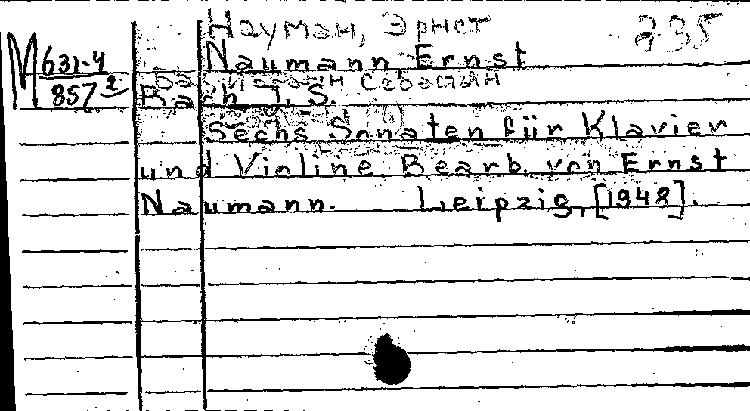 Науман, Эрнст 235
Naumann Ernst
М 631-4
857²
Бах, Иоганн Себастьян
Bach J. S.
Sechs Sonaten für Klavier
und Violine. Bearb. von Ernst
Naumann. Leipzig, [1948].